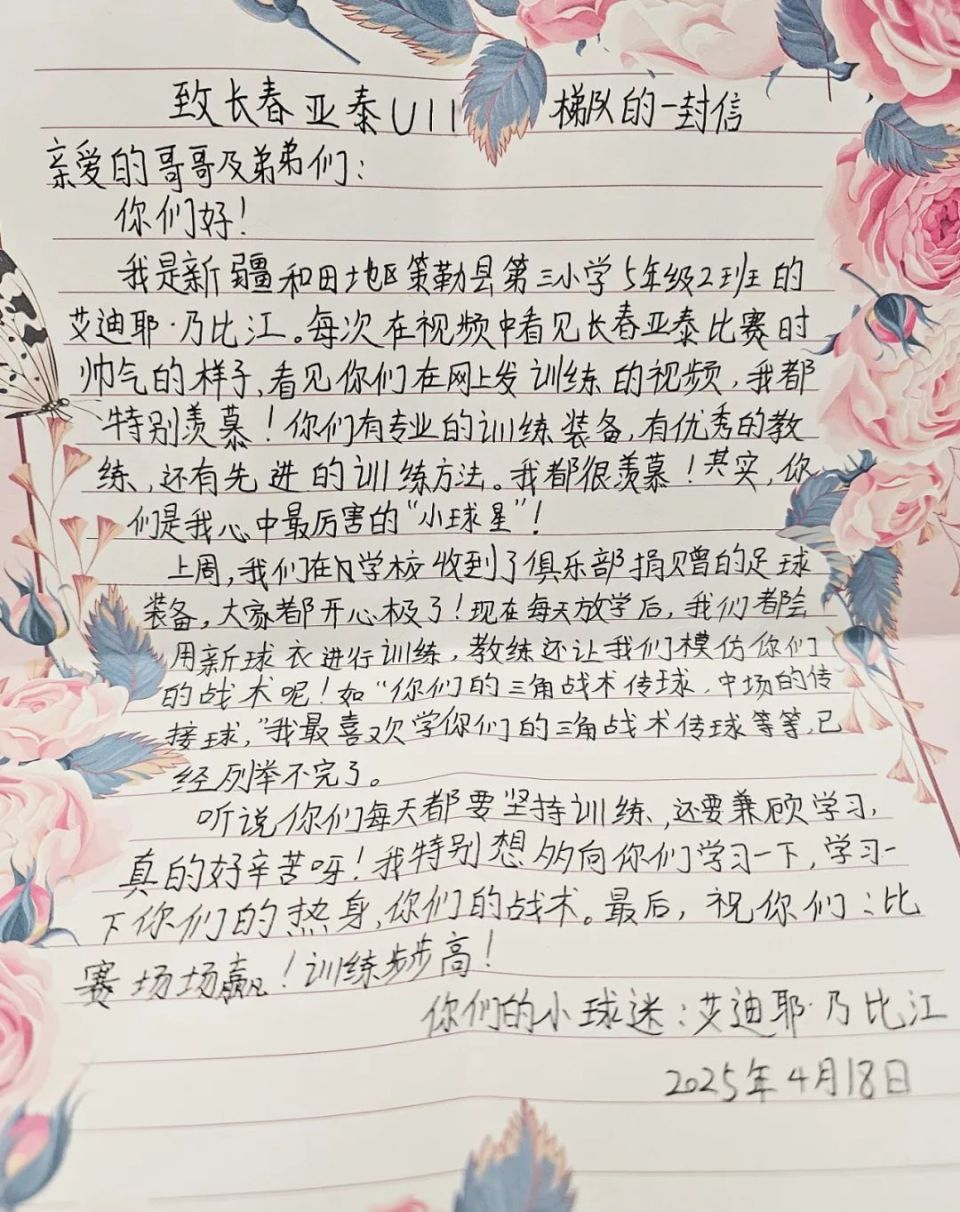 致长春亚泰U11 梯队的一封信
亲爱的哥哥及弟弟们:
你们好!
我是新疆和田地区策勒县第三小学5年级2班的
艾迪耶·乃比江。每次在视频中看见长春亚泰比赛时
帅气的样子、看见你们在网上发训练的视频,我都
特别羡慕!你们有专业的训练装备,有优秀的教
练,还有先进的训练方法。我都很羡慕!其实,你
们是我心中最厉害的“小球星”!
上周,我们在学校收到了俱乐部捐赠的足球
装备,大家都开心极了!现在每天放学后,我们都会
用新球衣进行训练,教练还让我们模仿你们
的战术呢!如“你们的三角战术传球,中场的传
接球,”我最喜欢学你们的三角战术传球等等,已
经列举不完了。
听说你们每天都要坚持训练、还要兼顾学习,
真的好辛苦呀!我特别想多向你们学习一下,学习一
下你们的热身,你们的战术。最后,祝你们:比
赛场场赢!训练步步高!
你们的小球迷:艾迪耶·乃比江
2025年4月18日